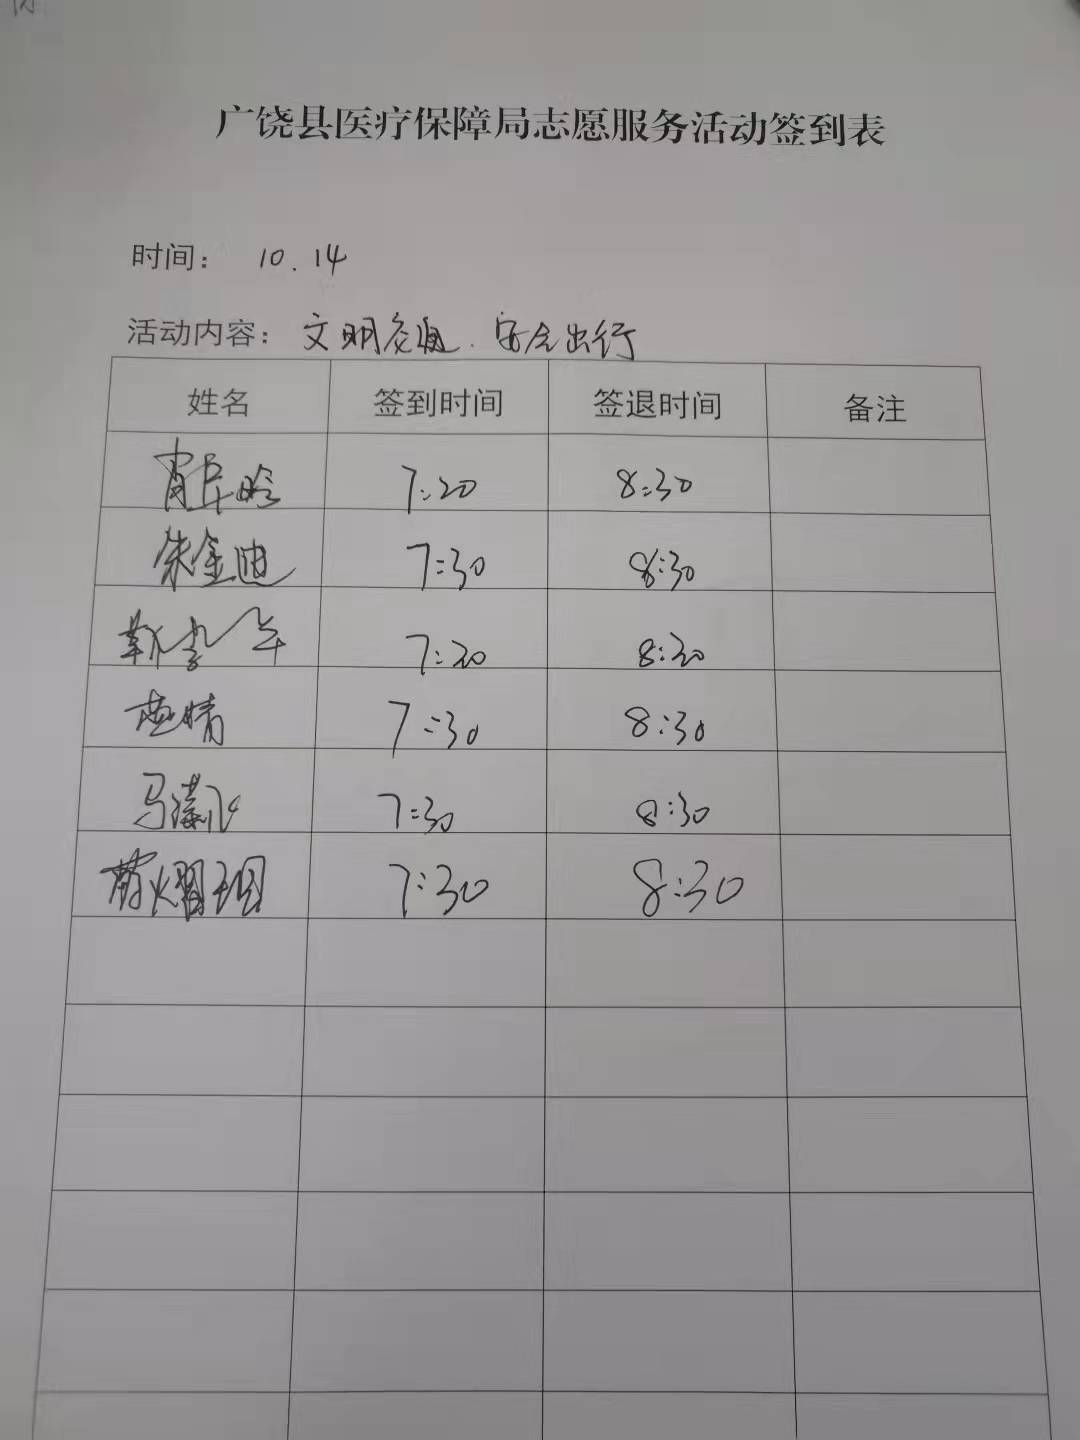 广饶县医疗保障局志愿服务活动签到表
时间： 10.14
活动内容：文明交通.安全出行
姓名 签到时间 签退时间 备注
7:20 8:30
朱金迪 7:30 8:30
7:20 8:20
7:30 8:30
马 7:30 8:30
7:30 8:30